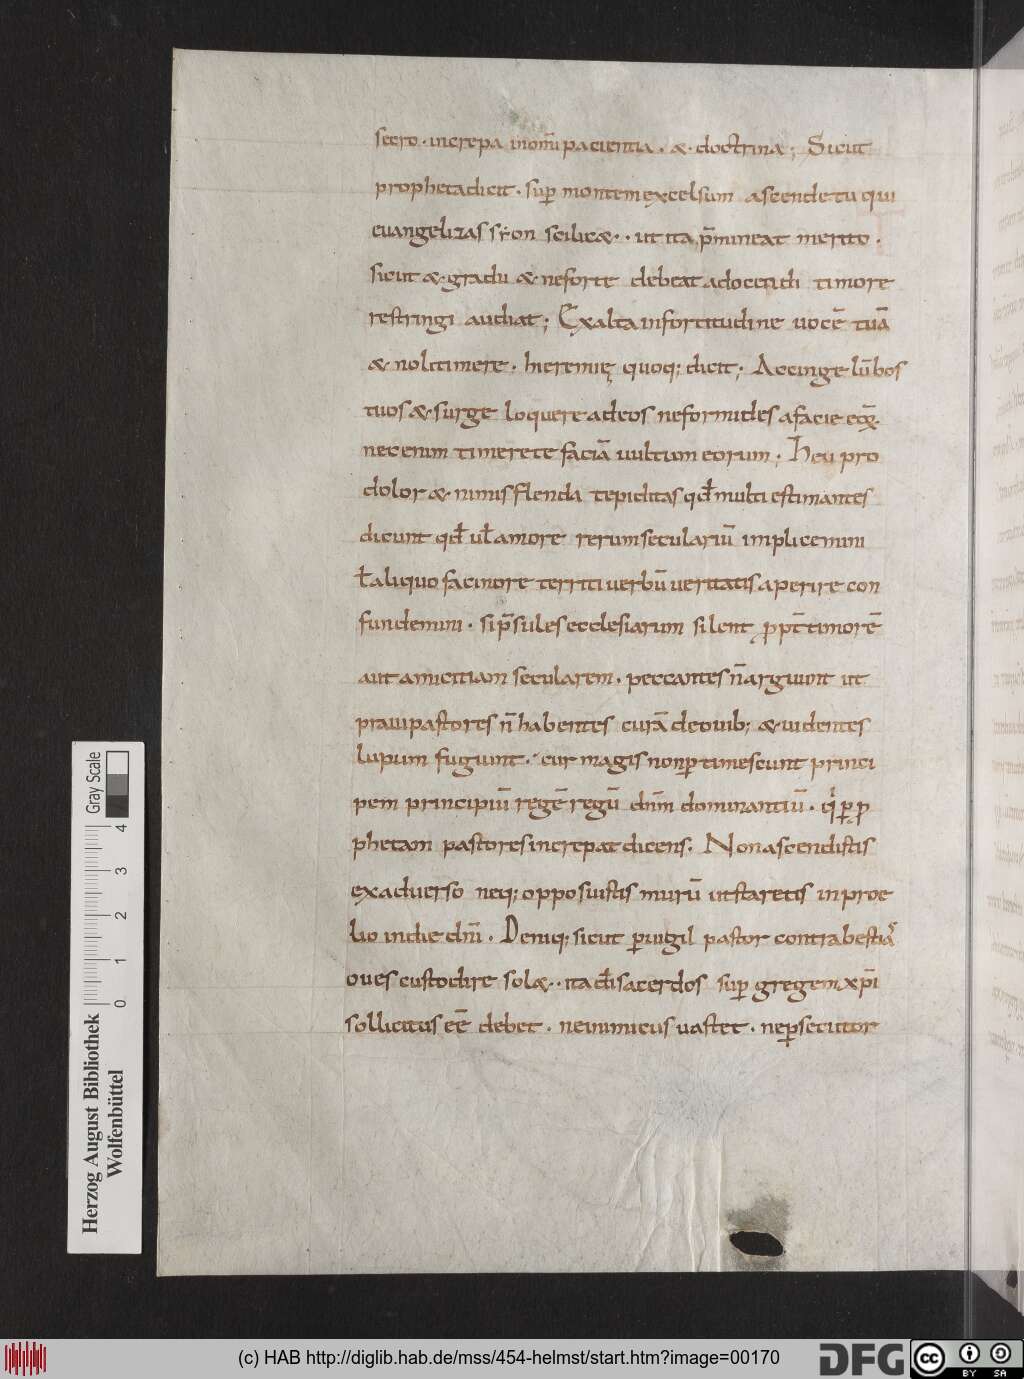 secro · increpa inom̅i pacientia · & · doctrina ; Sicut
propheta dicit · sup̅ montem excelsum ascende tu qui
euangelizas syon scilicæ · · ut ita p̅mineat merito ·
sicut & · gradu & · neforte debeat adocendi timore
restringi audiat ; Exalta infortitudine uocē tuā
& · nolitimere · hieremię quoq; dicit ; Accinge lūbos
tuos & · surge loquere adeos neformides afacie eoꝝ ·
nec enim timerete faciā uultum eorum ; Heu pro
dolor & · nimis flenda tepiditas qd̅ multi estimantes
dicunt qd̅ ul̅ amore rerum seculariū implicemini
l̅ aliquo facinore territi uerbū ueritatis aperire con
fundemini · si p̅sules ecclesiarum silent ꝓpt̅ timorē
aut amicitiam secularem · peccantes n̅ arguunt ut
praui pastores n̅ habentes curā deouib; & · uidentes
lupum fugiunt · cur magis non ꝑtimescunt princi
pem principiū regē regū dn̅m dominantiū · q̇ ꝑ ꝓ
phetam pastores increpat dicens · Non ascendistis
exaduerso neq; opposuistis murū utstaretis inproe
lio indie dn̅i · Deniq; sicut ꝑuigil pastor contrabestiā
oues custodire solæ · · ita d̅i sacerdos sup̅ gregem xp̅i
sollicitus eē debet · neinimicus uastet · neꝑsecutor
Gray Scale
4
3
2
1
0
Herzog August Bibliothek
Wolfenbüttel
(c) HAB http://diglib.hab.de/mss/454-helmst/start.htm?image=00170
DFG
cc BY SA